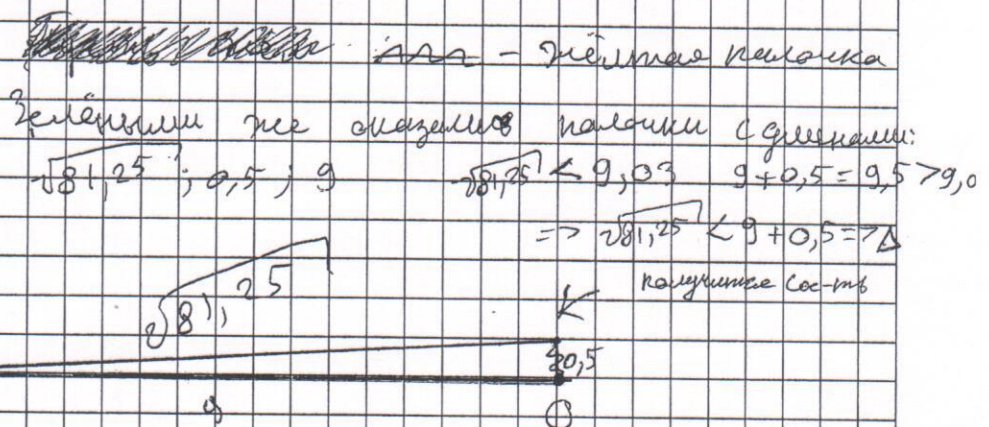 – жёлтая палочка
Зелёными же оказались палочки с длинами:
√81,25 ; 0,5 ; 9 √81,25 < 9,03 9+0,5=9,5>9,0
=> √81,25 < 9+0,5 => Δ
получится сос-ть
√81,25
0,5
9